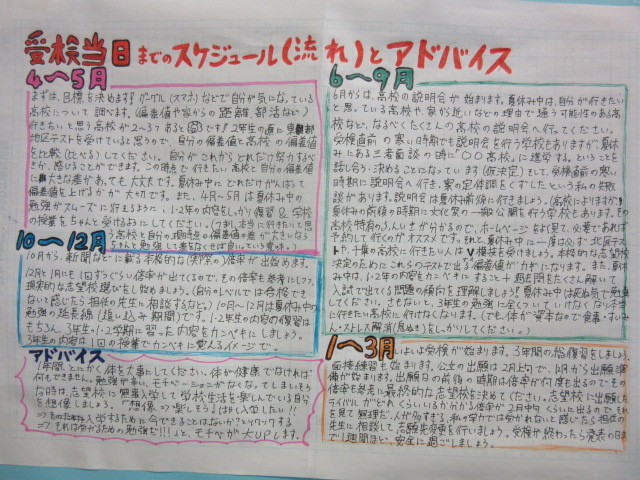 受検当日までのスケジュール(流れ)とアドバイス
4~5月
まずは、目標を決めます!グーグル(スマホ)などで自分が気になっている
高校について調べます。(偏差値や家からの距離、部活など)
行きたいと思う高校が2~3つあると です!2年生の直に東部
地区テストを受けていると思うので、自分の偏差値と高校の偏差値
を比較(比べる)してください。自分がこれからどれだけ努力するべ
きか、感じることができます。この時点で行きたい高校と自分の偏差値
に大きな差があっても大丈夫です。夏休み中にどれだけがんばって
偏差値を上げるかがカギです。また、4月~5月は夏休み中の
勉強がスムーズに行えるように、1・2年の内容をしっかり復習&学校
の授業をちゃんと受けるおにしてください。(つまり、本当に行きたいと思
う高校と自分の現時点の偏差値の差が大きいなら
ちゃんと勉強して差をなくせば良いという意味。)
10~12月
10月から、新聞などに載る本格的な(実際の)倍率が出始めます。
12月と1月にも1回ずつくらい倍率が出てくるので、その倍率を参考にしつつ、
現実的な志望校選びをし始めましょう。(自分のレベルでは合格でき
ないと感じたら担任の先生に相談するなど。)10月~12月は夏休み中の
勉強の延長線(追い込み期間)です。1・2年生の内容の復習は
もちろん、3年生の1・2学期に習った内容をカンペキにしましょう。
3年生の内容は1回の授業でカンペキに覚えるイメージで。
アドバイス
1年間、とにかく体を大事にしてください。体が健康でなければ
何もできません。勉強が辛い、モチベーションがなくなってしまいそう
な時は、志望校に無事入学して学校生活を楽しんでいる自分
を想像しましょう。「想像⇒楽しそう♪はやく入学したい!!
⇒そのため 入学するために今できることはないか?とワクワクする
⇒それは受かるための勉強だ!!」と、モチベが大UPします。
6~9月
6月からは、高校の説明会が始まります。夏休み中は、自分が行きたい
と思っている高校や、家から近いなどの理由で通う可能性のある高
校など、なるべくたくさんの高校の説明会へ行ってください。
受検直前の寒い時期でも説明会を行う学校もありますが、夏休
みにある三者面談の時に「〇〇高校」に進学する。ということを
話し合う・決めることになっています(仮決定)そして、受検直前の寒い
時期に説明会へ行き、寒の定体調をくずしたという私の失敗
談があります。説明会は夏休み前後に行きましょう。(高校によりますが
夏休みの前後の時期に文化祭の一般公開を行う学校もあります。その
高校特有のふんいきが分かるので、ホームページをよく見て、必要であれば
予約して行くのがオススメです。)それと、夏休み中に一度は必ず北辰テス
ト、千葉の高校に行きたい人はV模擬を受けましょう。本格的な志望校
決定のためにこれらのテストで出る偏差値がカギになります。また、夏休
み中は、1・2年の内容をカンペキにすること+過去問をたくさん解いて
入試で出てくる問題の傾向を理解しましょう!夏休み中は死ぬ気で勉強
してください。さもないと、3年生の勉強に全くついていけなくなり、本当
に行きたい高校に行けなくなります。(でも、体が資本なので食事・すいみ
ん・ストレス解消(息ぬき)をしっかりしてください。)
1~3月
いよいよ受検が始まります。3年間の総復習をしましょう。
面接練習も始まります。公立の出願は2月上旬で、1月から出願準
備が始まります。出願日の前後の時期は倍率が何度も出るので、その
倍率を参考に最終的な志望校を決めてください。志望校に出願した
ライバルがどれくらいいるか分かる倍率が2月中旬くらいに出るのでそれ
を見て無理だ、人が多すぎる、私の学力では受かれないと感じたら担任の
先生に相談して志願先変更を行いましょう。受検が終わったら発表の日ま
で1週間ほど、安全に過ごしましょう。